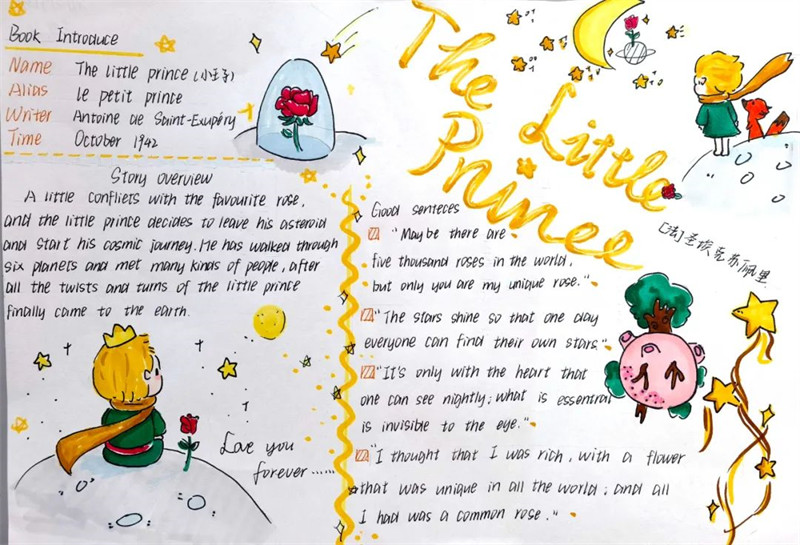 Book Introduce
Name The little prince (小王子)
Alias le petit prince
Writer Antoine de Saint-Exupéry
Time October 1942
Story overview
A little conflicts with the favourite rose,
and the little prince decides to leave his asteroid
and start his cosmic journey. He has walked through
six planets and met many kinds of people, after
all the twists and turns of the little prince
finally came to the earth.
Love you
forever......
The Little
Prince
[法]圣埃克苏佩里
Good senteces
"Maybe there are
five thousand roses in the world,
but only you are my unique rose."
"The stars shine so that one day
everyone can find their own stars."
"It's only with the heart that
one can see nightly; what is essential
is invisible to the eye."
"I thought that I was rich, with a flower
that was unique in all the world; and all
I had was a common rose."